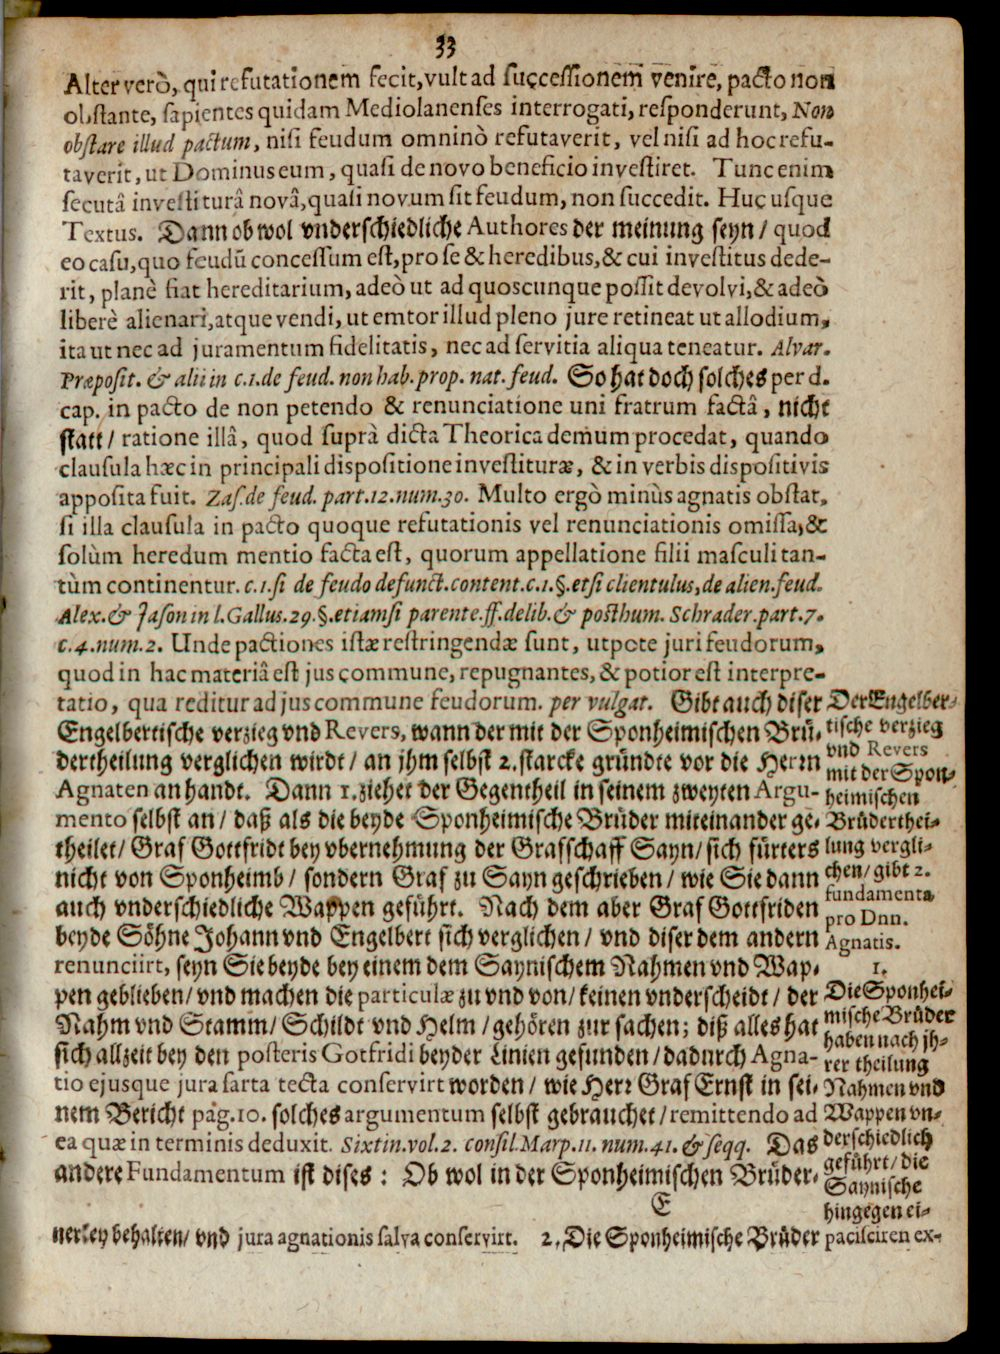 33
Alter verò, qui refutationem fecit, vult ad successionem venire, pacto non
obstante, sapientes quidam Mediolanenses interrogati, responderunt, Non
obstare illud pactum, nisi feudum omninò refutaverit, vel nisi ad hoc refu-
taverit, ut Dominus eum, quasi de novo beneficio investiret. Tunc enim
secutâ investiturâ novâ, quasi novum sit feudum, non succedit. Huc usque
Textus. Dann ob wol vnderschiedliche Authores der meinung seyn / quod
eo casu, quo feudū concessum est, pro se & heredibus, & cui investitus dede-
rit, planè fiat hereditarium, adeò ut ad quoscunque possit devolvi, & adeò
liberè alienari, atque vendi, ut emtor illud pleno jure retineat ut allodium,
ita ut nec ad juramentum fidelitatis, nec ad servitia aliqua teneatur. Alvar.
Præposit. & alii in c.1. de feud. non hab. prop. nat. feud. So hat doch solches per d.
cap. in pacto de non petendo & renunciatione uni fratrum factâ, nicht
statt / ratione illâ, quod suprà dicta Theorica demum procedat, quando
clausula hæc in principali dispositione investituræ, & in verbis dispositivis
apposita fuit. Zas. de feud. part. 12. num. 30. Multo ergò minùs agnatis obstat,
si illa clausula in pacto quoque refutationis vel renunciationis omissa, &
solùm heredum mentio facta est, quorum appellatione filii masculi tan-
tùm continentur. c.1. si de feudo defunct. content. c.1. §. etsi clientulus, de alien. feud.
Alex. & Jason in l. Gallus. 29. §. etiamsi parente. ff. de lib. & posthum. Schrader. part. 7.
c. 4. num. 2. Unde pactiones istæ restringendæ sunt, utpote juri feudorum,
quod in hac materiâ est jus commune, repugnantes, & potior est interpre-
tatio, qua reditur ad jus commune feudorum. per vulgat. Gibt auch diser
Engelbertische verzieg vnd Revers, wann der mit der Sponheimischen Brü-
dertheilung verglichen wirdt / an jhm selbst 2. starcke gründte vor die Herrn
Agnaten an handt. Dann 1. ziehet der Gegentheil in seinem zweyten Argu-
mento selbst an / daß als die beyde Sponheimische Brüder miteinander ge-
theilet / Graf Gottfridt bey vbernehmung der Grafschaff Sayn / sich fürters
nicht von Sponheimb / sondern Graf zu Sayn geschrieben / wie Sie dann
auch vnderschiedliche Wappen geführt. Nach dem aber Graf Gottfriden
beyde Söhne Johann vnd Engelbert sich verglichen / vnd diser dem andern
renunciirt, seyn Sie beyde bey einem dem Saynischem Nahmen vnd Wap-
pen geblieben / vnd machen die particulæ zu vnd von / keinen vnderscheidt / der
Nahm vnd Stamm / Schildt vnd Helm / gehören zur sachen; diß alles hat
sich allzeit bey den posteris Gotfridi beyder Linien gefunden / dadurch Agna-
tio ejusque jura sarta tecta conservirt worden / wie Herr Graf Ernst in sei-
nem Bericht pag. 10. solches argumentum selbst gebrauchet / remittendo ad
ea quæ in terminis deduxit. Sixtin. vol. 2. consil. Marp. 11. num. 41. & seqq. Das
andere Fundamentum ist dises: Ob wol in der Sponheimischen Brüder-
E
Der Engelber-
tische verzieg
vnd Revers
mit der Spon-
heimischen
Brüderthei-
lung vergli-
chen / gibt 2.
fundamenta
pro Dnn.
Agnatis.
1.
Die Sponhei-
mische Brüder
haben nach jh-
rer theilung
Nahmen vnd
Wappen vn-
derschiedlich
geführt / die
Saynische
hingegen ei-
nerley behalten / vnd jura agnationis salva conservirt. 2. Die Sponheimische Brüder paciscirenex-